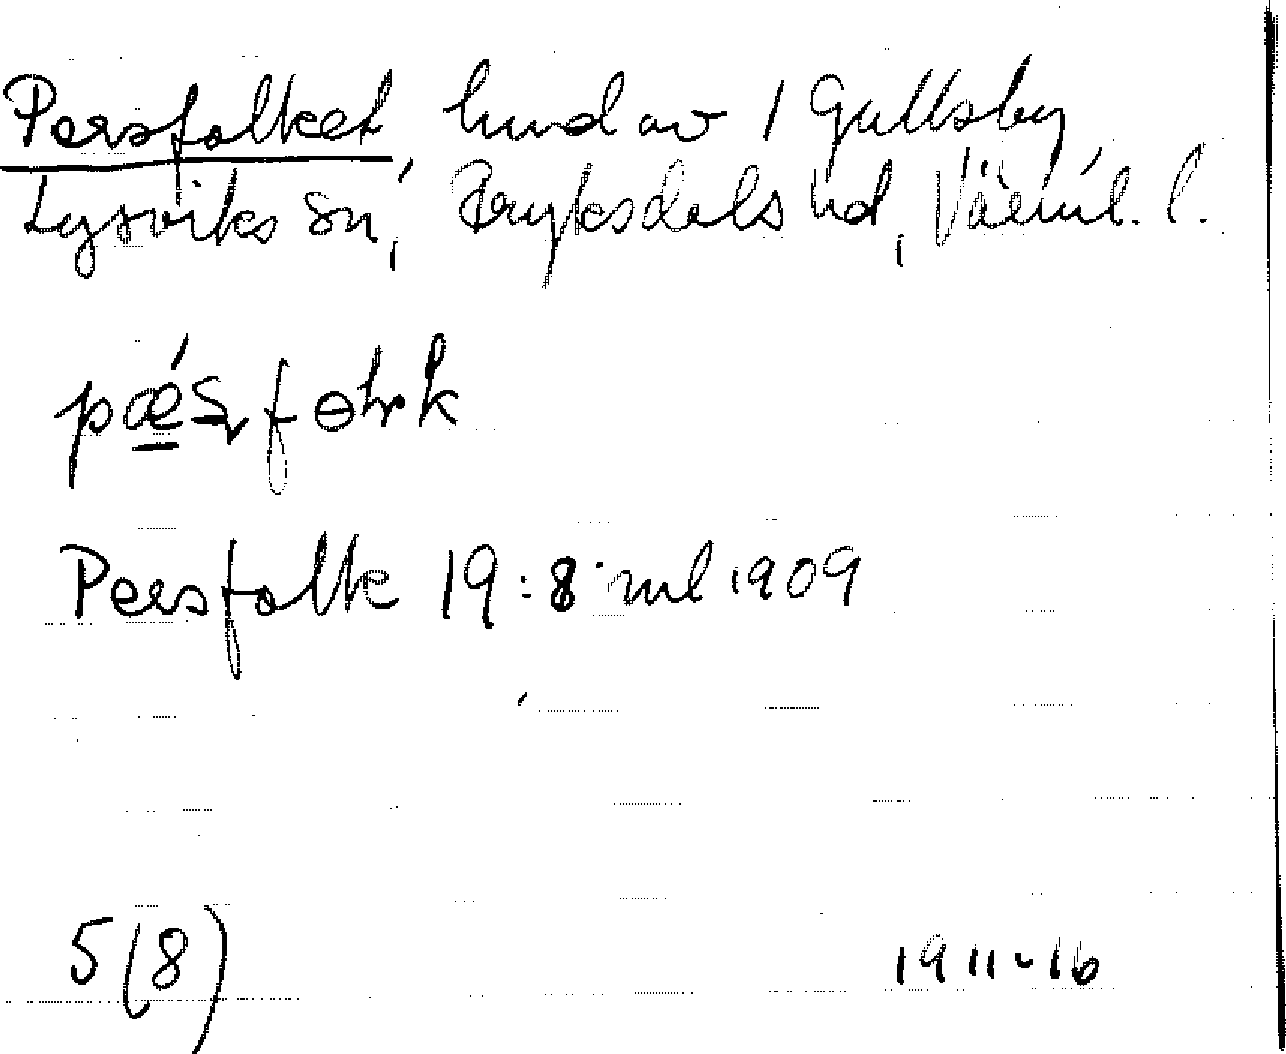 Persfolket, hmd av 1 Gullsby
Lysviks sn, Fryksdals hd, Värml. l.
Persfolk 19:8 ml 1909
5 (8)
1911-16